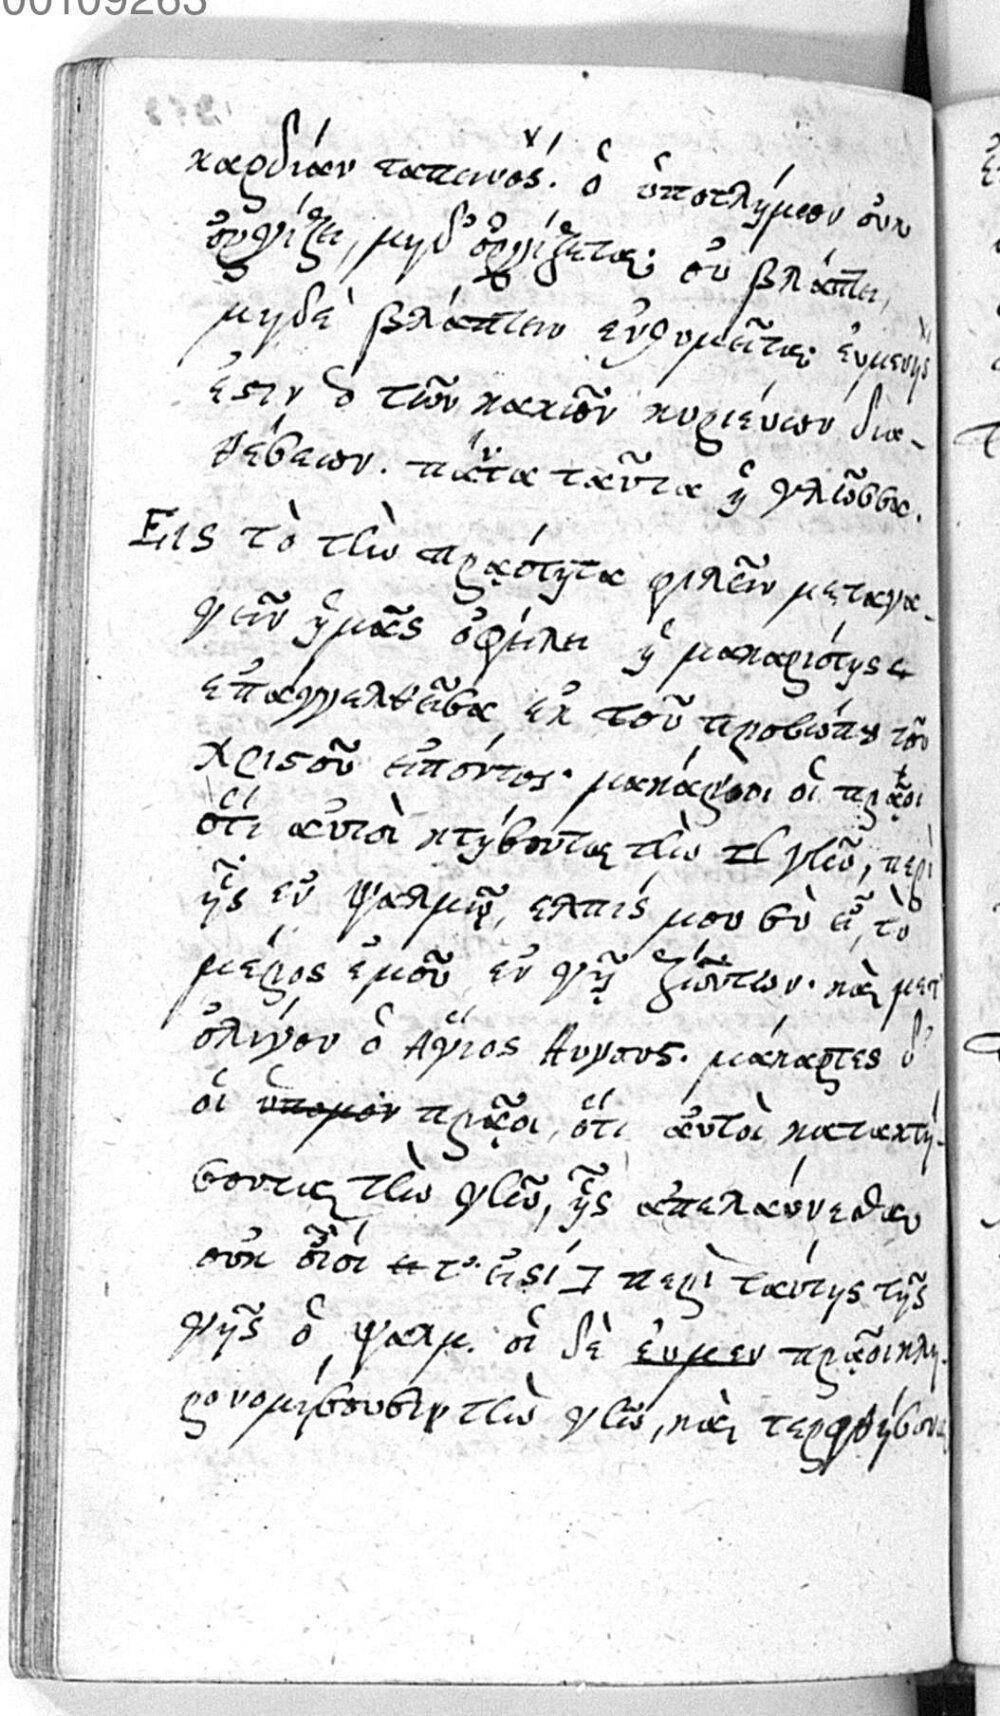 00109263
καρδίαν ταπεινός. ὁ ὑποτλήμων οὐκ
ὀργίζει, μηδ' ὀργίζεται· οὐ βλάπτει,
μηδὲ βλάπτειν ἐνθυμεῖται· εὐμενής
ἐστιν ὁ τῶν κακῶν κυριεύων δια-
θέσεων. πάντα ταῦτα ἡ γλῶσσα.
Εἰς τὸ τὴν πραότητα φιλεῖν μεταγα-
γεῖν ἡμᾶς ὀφείλει ἡ μακαριότης
ἐπαγγελθεῖσα ἐκ τοῦ προσώπου τοῦ
Χριστοῦ εἰπόντος· μακάριοι οἱ πρᾶοι
ὅτι αὐτοὶ κτήσονται τὴν γῆν, περὶ
ἧς ἐν ψαλμῷ, ἐλπίς μου σὺ εἶ, τὸ
μέρος ἐμοῦ ἐν γῇ ζώντων. καὶ μετ'
ὀλίγον ὁ Ἅγιος Αυγους. μάκαρτες δ'
οἱ ὑπομον πρᾶοι, ὅτι αὐτοὶ κατακτή-
σονται τὴν γῆν, ἧς ἀπελαύνεσθαι
οὐκ οἷοί τ' εἰσί περὶ ταύτης τῆς
γῆς ὁ ψαλμ. οἱ δὲ εὐμεν πρᾶοι κλη-
ρονομήσουσιν τὴν γῆν, καὶ τερφθήσονται